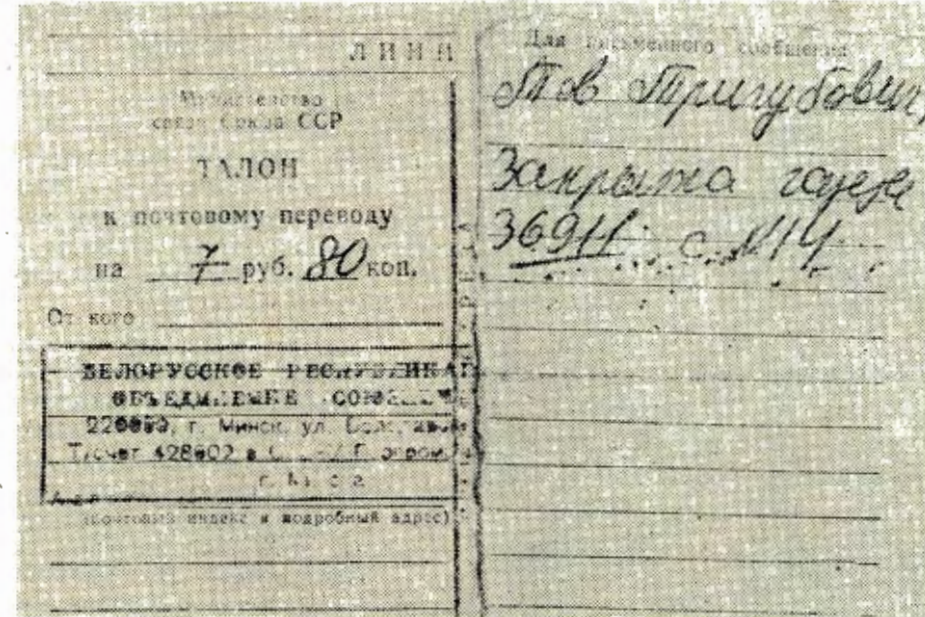 ЛИНИ
Министерство
связи Союза ССР
ТАЛОН
к почтовому переводу
на 7 руб. 80 коп.
От кого
БЕЛОРУССКОЕ РЕСПУБЛИКА
ОБЪЕДИНЕНИЕ
г. Минск, ул.
(почтовый индекс и подробный адрес)
Для письменного сообщения
Тов Тригубович
Закрыта газета
36911 с №14